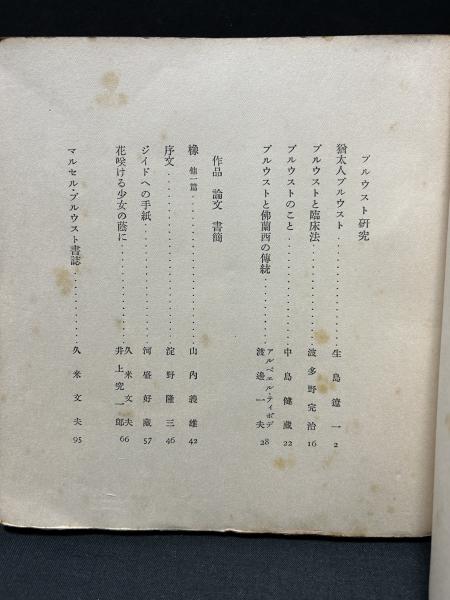 プルウスト研究
猶太人プルウスト・・・・・・・・・・生島遼一 2
プルウストと臨床法・・・・・・・・・・波多野完治 16
プルウストのこと・・・・・・・・・・中島健蔵 22
プルウストと佛蘭西の傳統・・・・・・・・・・アルベエル・ティボデ 渡邊一夫 28
作品 論文 書簡
橡 他一篇・・・・・・・・・・山内義雄 42
序文・・・・・・・・・・淀野隆三 46
ジイドへの手紙・・・・・・・・・・河盛好蔵 57
花咲ける少女の蔭に・・・・・・・・・・久米文夫 井上究一郎 66
マルセル・プルウスト書誌・・・・・・・・・・久米文夫 95